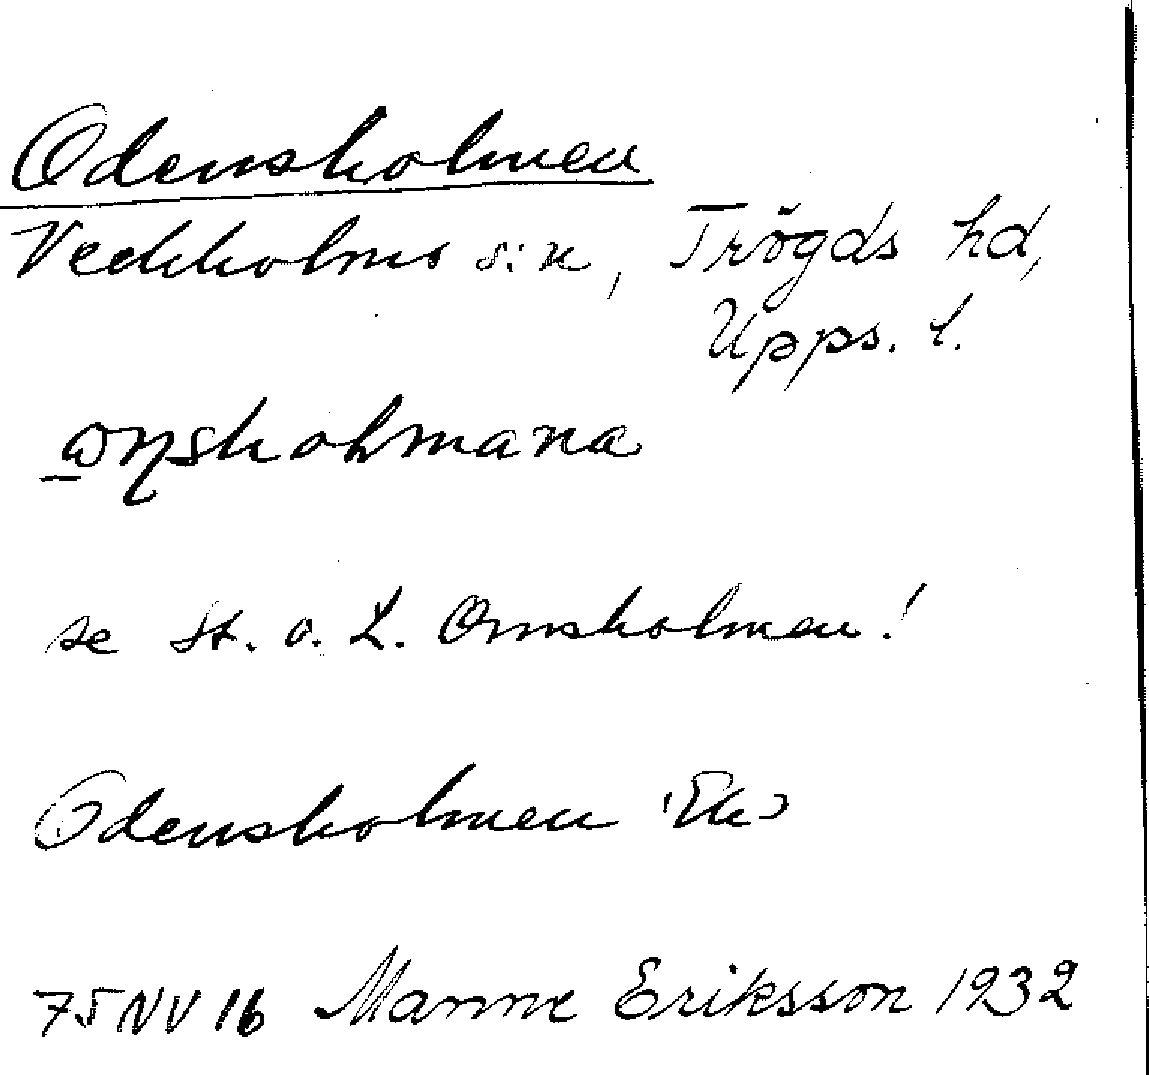 Odensholmen
Veckholms s:n, Trögds hd,
Upps. l.
se St. o. L. Ornsholmen!
Odensholmen Ek
75 NV 16 Manne Eriksson 1932